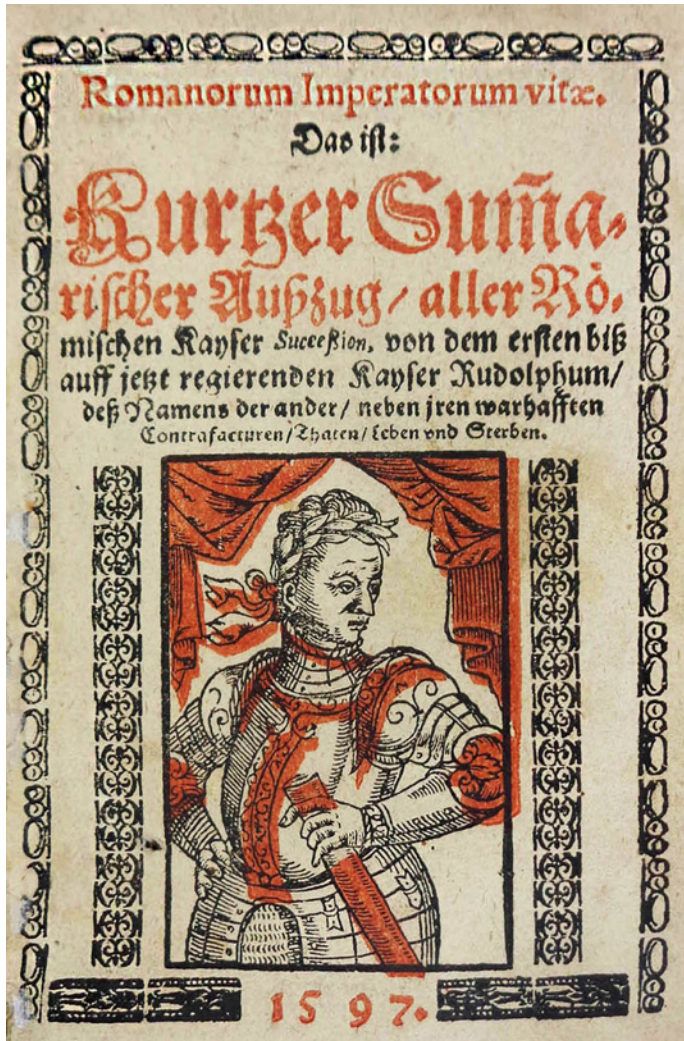 Romanorum Imperatorum vitæ.
Das ist:
Kurtzer Sum̃a-
rischer Außzug/ aller Rö-
mischen Kayser Succeßion, von dem ersten biß
auff jetzt regierenden Kayser Rudolphum/
deß Namens der ander/ neben jren warhafften
Contrafacturen/Thaten/Leben vnd Sterben.
1597.